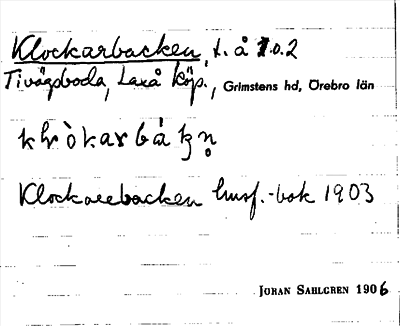 Klockarbacken, t. å 1.0.2
Tivägsboda, Laxå köp., Grimstens hd, Örebro län
Klockarebacken husf.-bok 1903
JÖRAN SAHLGREN 1906